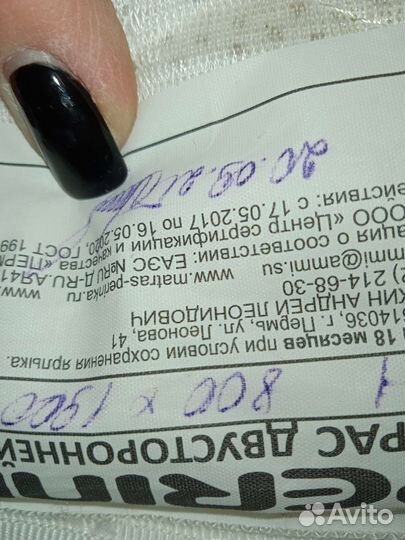 РАС ДВУСТОРОННЕЙ
1 800 x 1900
18 месяцев при условии сохранения ярлыка.
614036, г. Пермь, ул. Леонова, 41
КИН АНДРЕЙ ЛЕОНИДОВИЧ
) 214-68-30
mmi@ammi.su www.matras-perinka.ru
ация о соответствии: ЕАЭС №RU Д-RU.АЯ41
ООО «Центр сертификации и качества «ПЕРМ
действия: с 17.05.2017 по 16.05.2020, ГОСТ 199
20.09.21
Avito